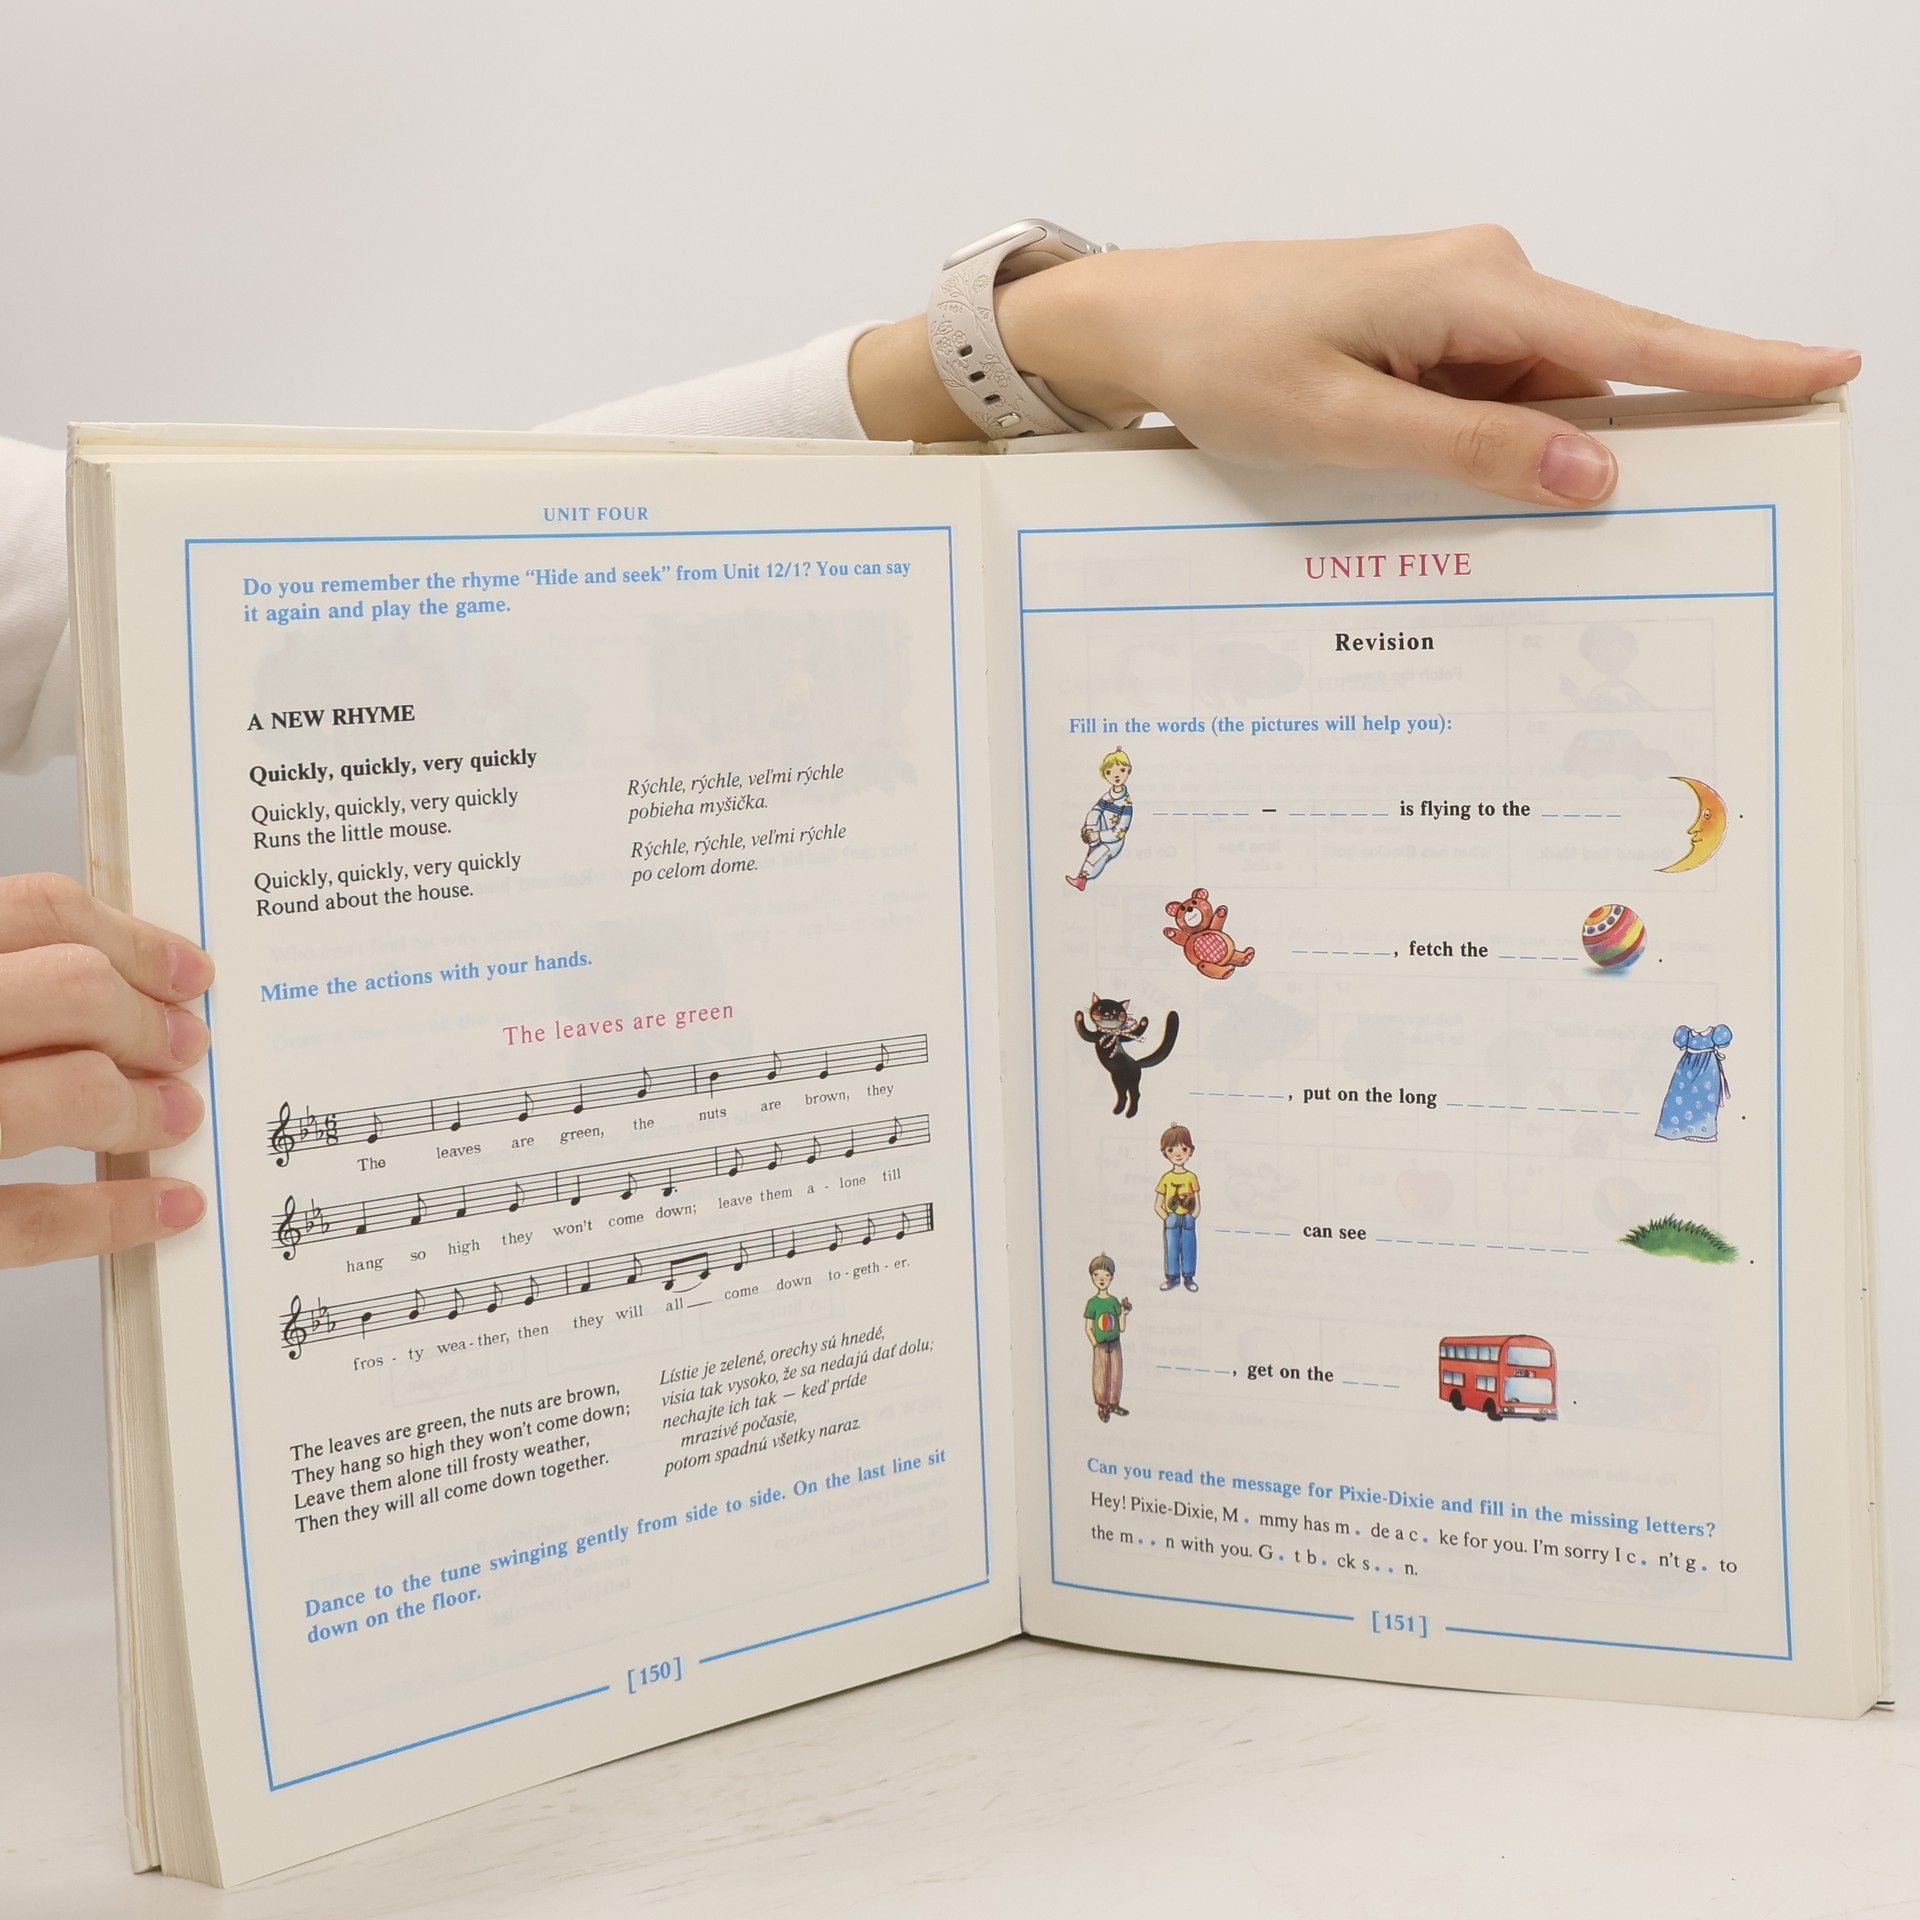 UNIT FOUR
Do you remember the rhyme “Hide and seek” from Unit 12/1? You can say
it again and play the game.
A NEW RHYME
Quickly, quickly, very quickly
Quickly, quickly, very quickly
Runs the little mouse.
Quickly, quickly, very quickly
Round about the house.
Rýchle, rýchle, veľmi rýchle
pobieha myšička.
Rýchle, rýchle, veľmi rýchle
po celom dome.
Mime the actions with your hands.
The leaves are green
The leaves are green, the nuts are brown, they
hang so high they won't come down; leave them a - lone till
fros - ty wea - ther, then they will all come down to - geth - er.
The leaves are green, the nuts are brown,
They hang so high they won't come down;
Leave them alone till frosty weather,
Then they will all come down together.
Lístie je zelené, orechy sú hnedé,
visia tak vysoko, že sa nedajú dať dolu;
nechajte ich tak — keď príde
mrazivé počasie,
potom spadnú všetky naraz.
Dance to the tune swinging gently from side to side. On the last line sit
down on the floor.
[150]
UNIT FIVE
Revision
Fill in the words (the pictures will help you):
_ _ _ _ _ – _ _ _ _ _ is flying to the _ _ _ _ .
_ _ _ _ _, fetch the _ _ _ _ .
_ _ _ _ _, put on the long _ _ _ _ _ _ _ _ _ _ .
_ _ _ _ can see _ _ _ _ _ _ _ _ _ _ .
_ _ _ _, get on the _ _ _ .
Can you read the message for Pixie-Dixie and fill in the missing letters?
Hey! Pixie-Dixie, M . mmy has m . de a c . ke for you. I'm sorry I c . n't g . to
the m . . n with you. G . t b . ck s . . n.
[151]